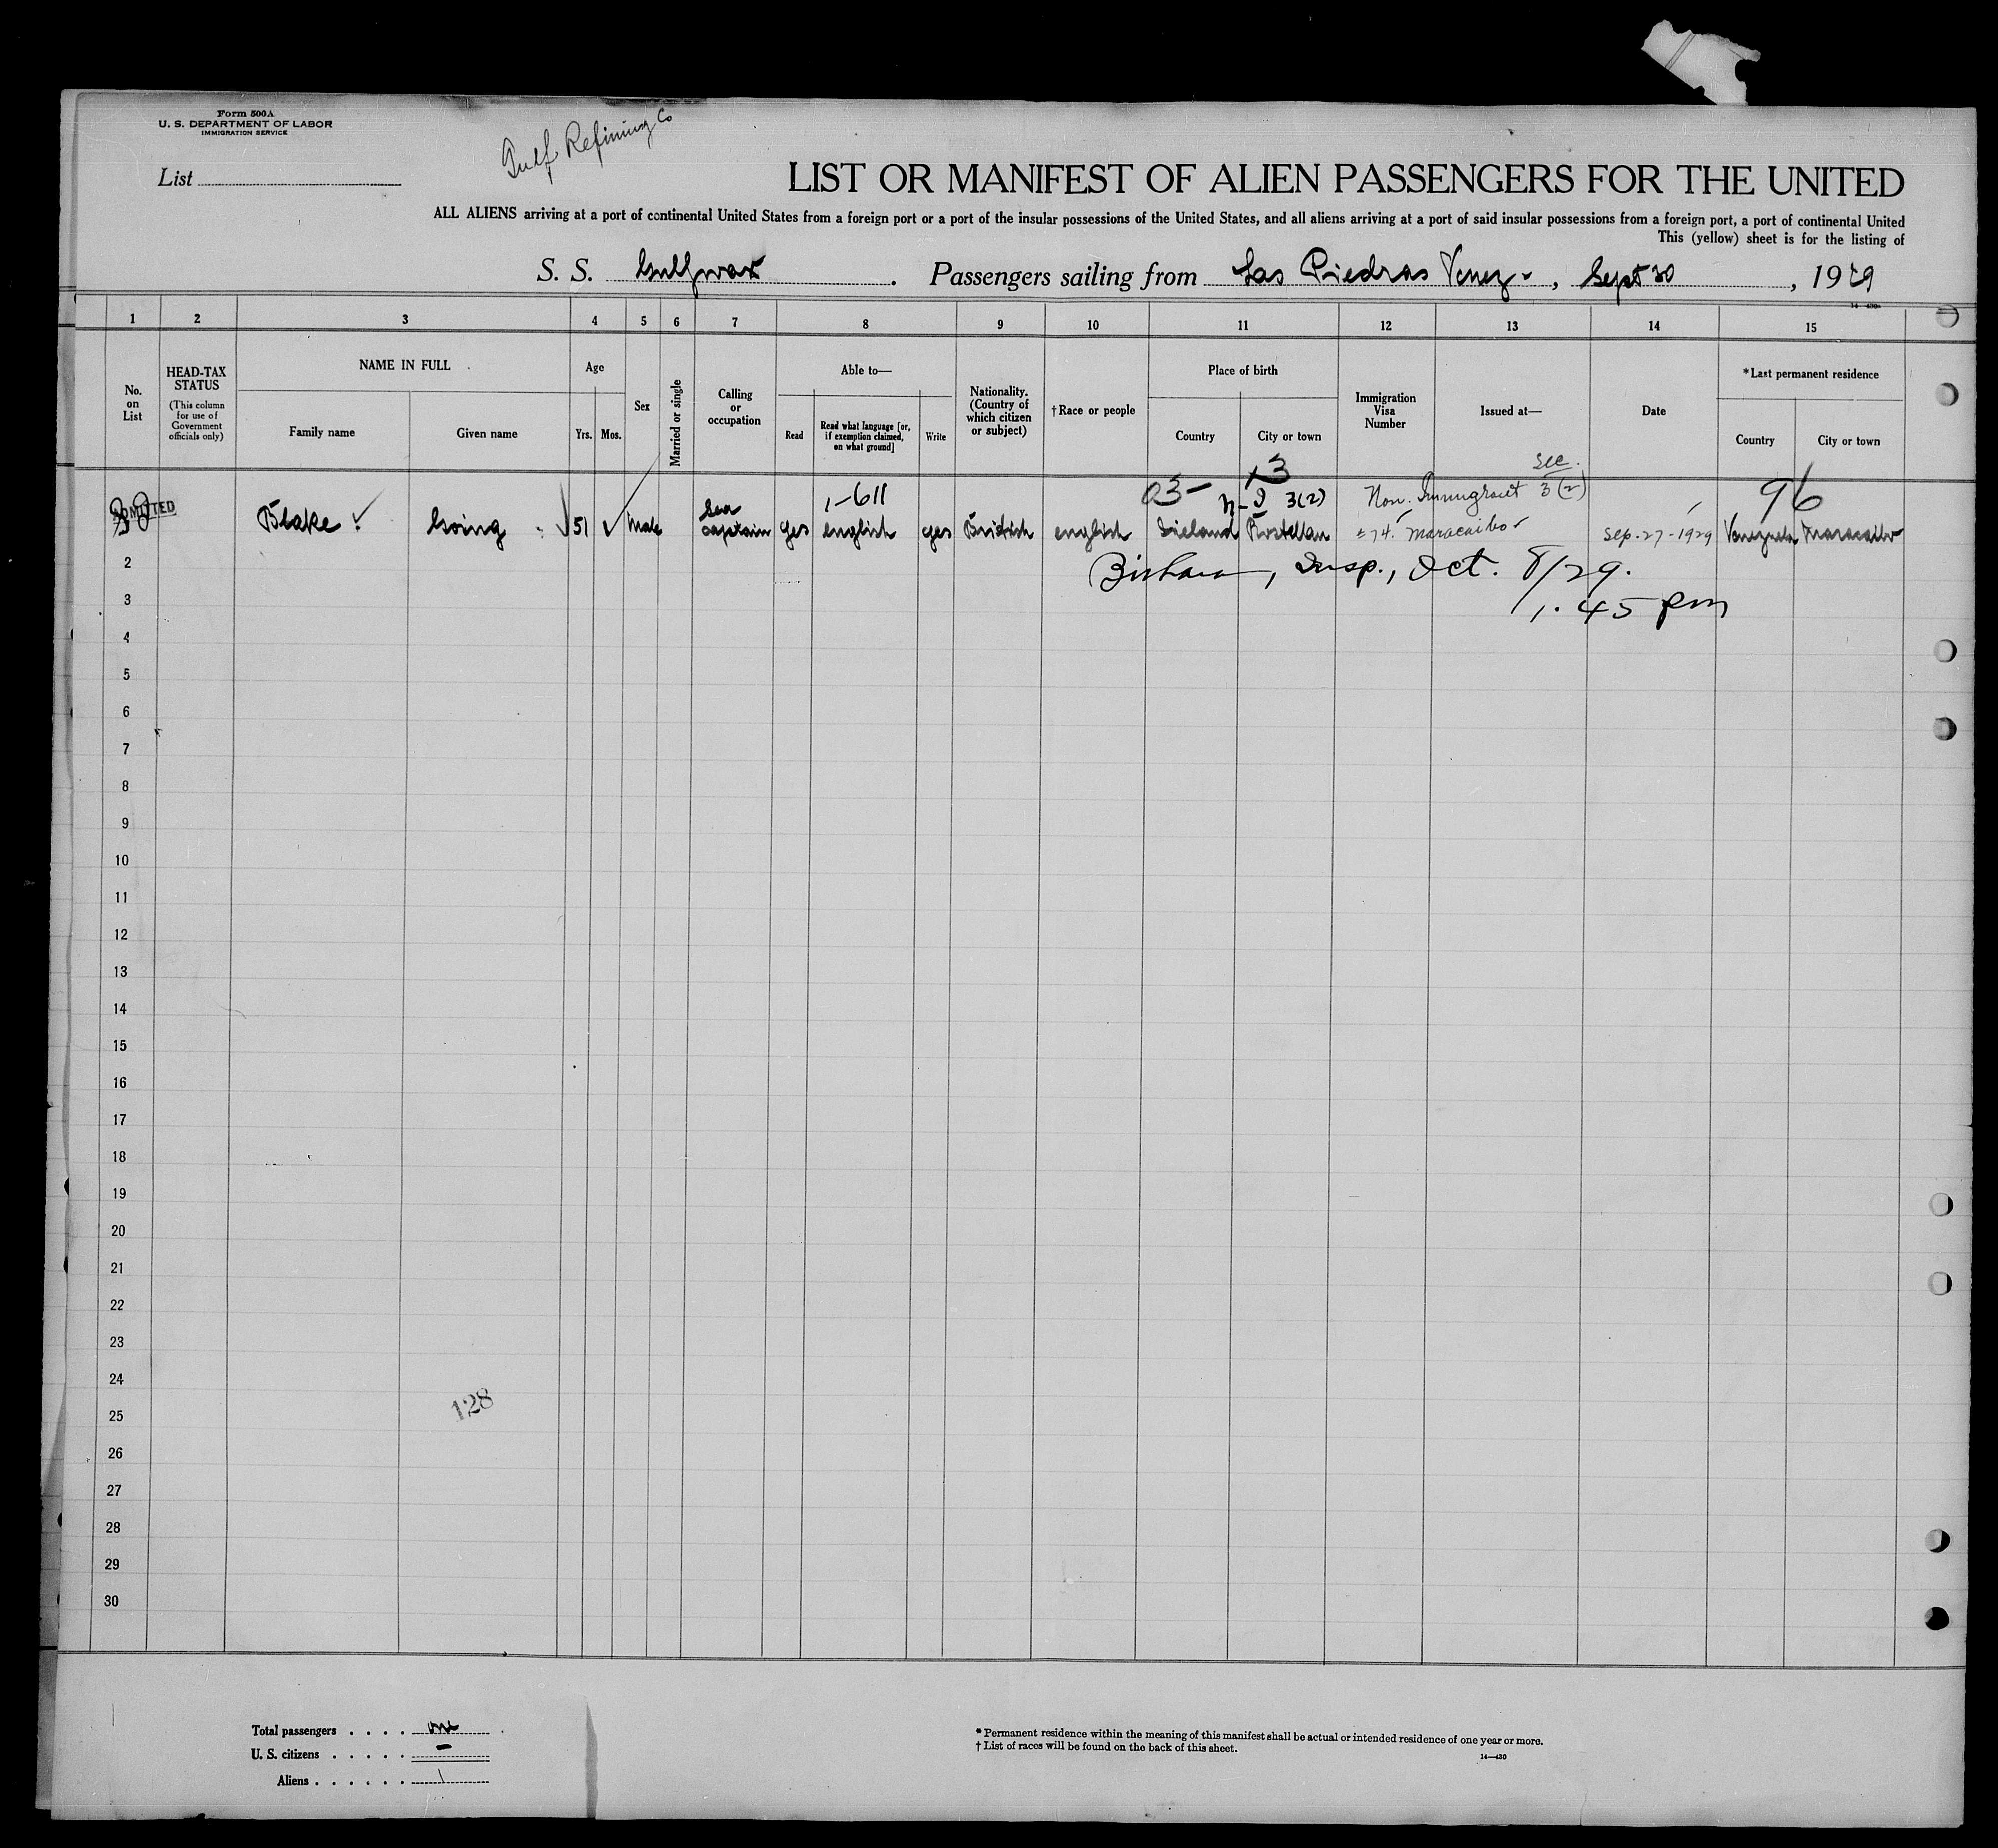 Form 500A
U. S. DEPARTMENT OF LABOR
IMMIGRATION SERVICE
Gulf Refining Co
List
LIST OR MANIFEST OF ALIEN PASSENGERS FOR THE UNITED
ALL ALIENS arriving at a port of continental United States from a foreign port or a port of the insular possessions of the United States, and all aliens arriving at a port of said insular possessions from a foreign port, a port of continental United
This (yellow) sheet is for the listing of
S. S. Gulfwax. Passengers sailing from Las Piedras Venez-, Sept 30, 1929
14—430
1 2 3 4 5 6 7 8 9 10 11 12 13 14 15
No. on List
HEAD-TAX STATUS
(This column for use of Government officials only)
NAME IN FULL
Family name
Given name
Age
Yrs. Mos.
Sex
Married or single
Calling or occupation
Able to—
Read
Read what language [or, if exemption claimed, on what ground]
Write
Nationality. (Country of which citizen or subject)
†Race or people
Place of birth
Country
City or town
Immigration Visa Number
Issued at—
Date
*Last permanent residence
Country
City or town
ADMITTED
1-611 03- x3 3(2) Non. Immigrant Sec. 3(2) 96
Blake Going 51 Male Sea captain yes english yes British english Ireland Rostellan 74 Maracaibo Sep-27-1929 Venezuela Maracaibo
2
Insp., Oct. 8/29.
3
1.45 pm
4
5
6
7
8
9
10
11
12
13
14
15
16
17
18
19
20
21
22
23
24
128
25
26
27
28
29
30
Total passengers . . . . one
U. S. citizens . . . . . –
Aliens . . . . . . 1
* Permanent residence within the meaning of this manifest shall be actual or intended residence of one year or more.
† List of races will be found on the back of this sheet.
14—430